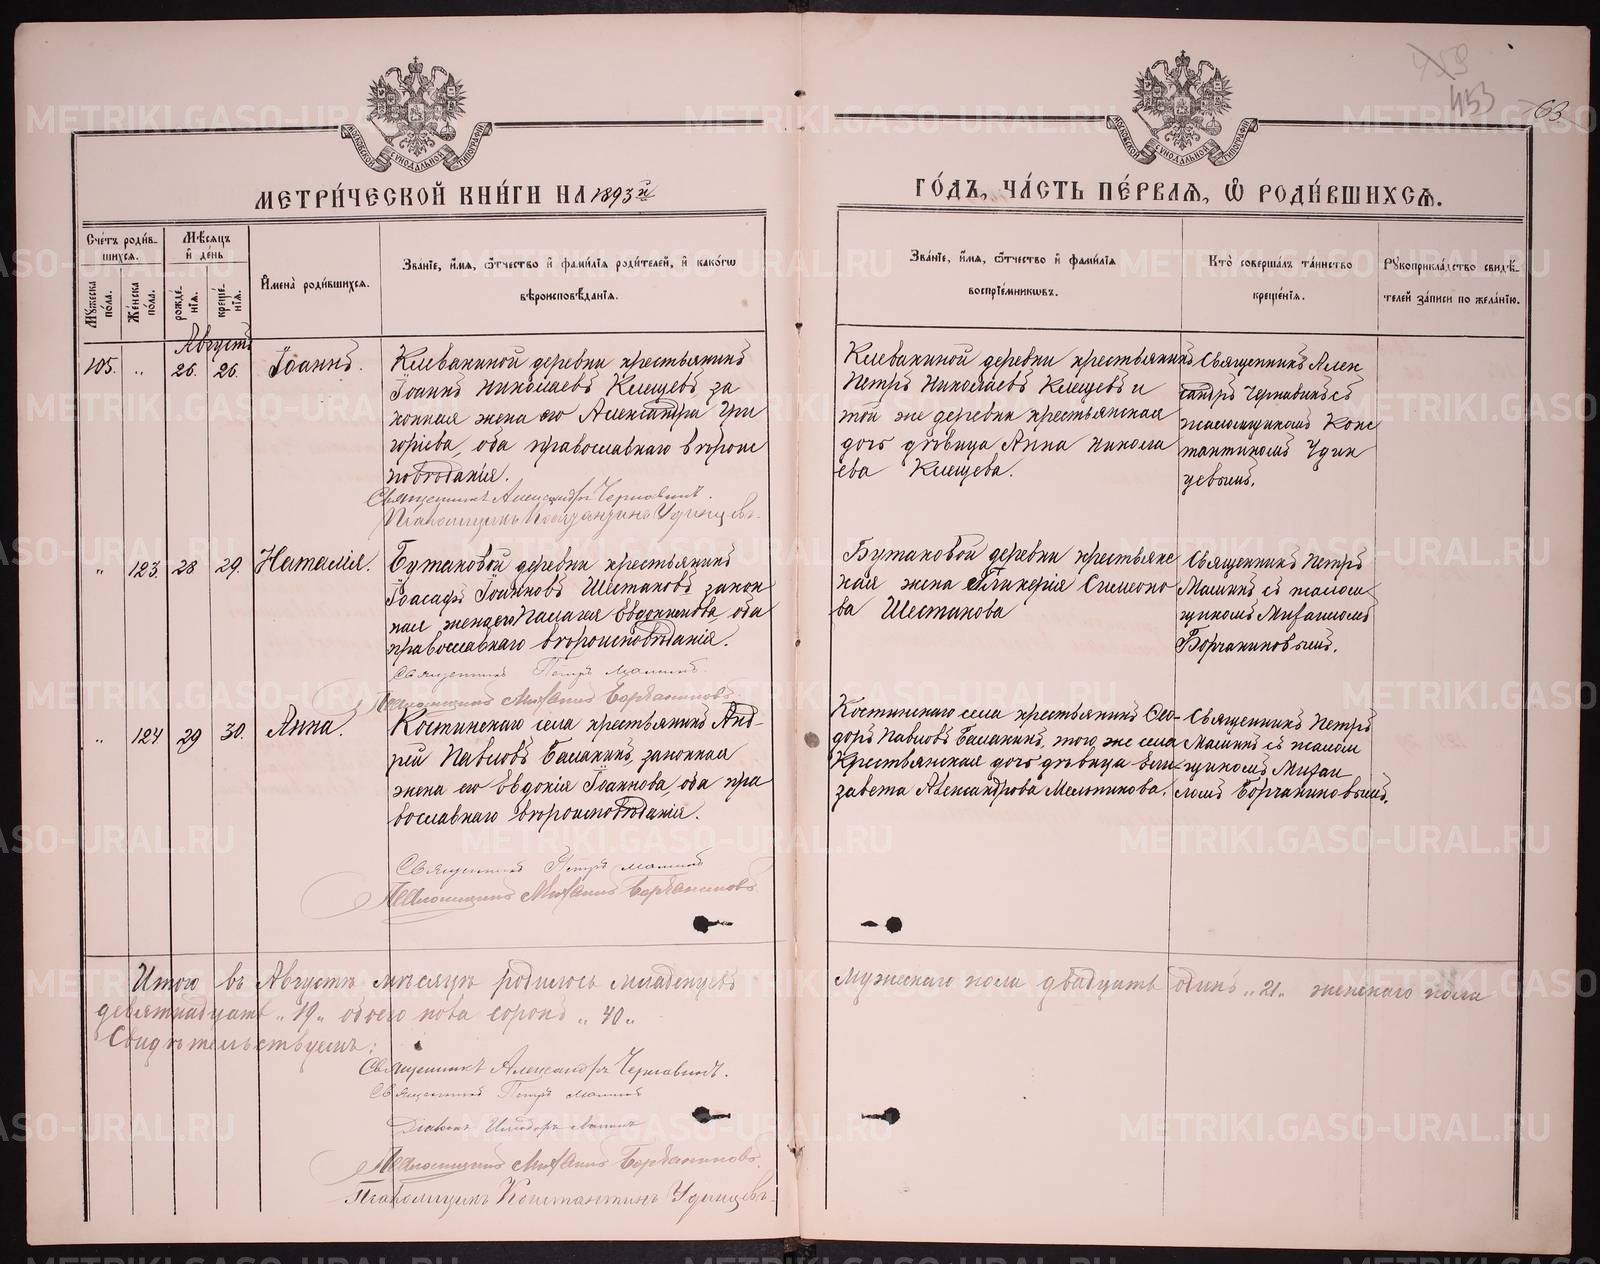 453
63
МОСКОВСКОЙ СѴНОДАЛЬНОЙ ТИПОГРАФІИ
МОСКОВСКОЙ СѴНОДАЛЬНОЙ ТИПОГРАФІИ
МЕТРИ́ЧЕСКОЙ КНИ́ГИ НА 1893й
ГО́ДЪ, ЧА́СТЬ ПЕ́РВАѦ, Ѡ҆ РОДИ́ВШИХСѦ.
Сче́тъ роди́в-
шихся.
Мѣ́сяцъ
и҆ де́нь
Му́жеска по́ла.
Же́нска по́ла.
рожде́-
нія.
креще́-
нія.
И҆мена̀ роди́вшихся.
Зва́ніе, и҆́мя, ѻ҆́тчество и҆ фами́лія роди́телей, и҆ како́гѡ
вѣроисповѣ́данія.
Зва́ніе, и҆́мя, ѻ҆́тчество и҆ фами́лія
воспріе́мниковъ.
Кто̀ соверша́лъ та́инство
креще́нія.
Рукоприкла́дство свидѣ́-
телей за́писи по жела́нію.
Августъ
105. „ 26. 26. Іоаннъ.
Клевакиной деревни крестьянинъ
Іоаннъ Николаевъ Клещевъ за
конная жена его Александра Гри
горьева, оба православнаго вѣроис
повѣданія.
Священникъ Александръ Чернавинъ.
Псаломщикъ Константинъ Удинцевъ.
Клевакиной деревни крестьянинъ
Петръ Николаевъ Клещевъ и
той же деревни крестьянская
дочь дѣвица Анна Никола
ева Клещева.
Священникъ Алек
сандръ Чернавинъ съ
псаломщикомъ Конс
тантиномъ Удин
цевымъ.
„ 123. 28 29. Наталія.
Бутаковой деревни крестьянинъ
Іоасафъ Іоанновъ Шестаковъ, закон
ная жена его Палагея Евдокимова, оба
православнаго вѣроисповѣданія.
Священникъ Петръ Малинъ
Псаломщикъ Михаилъ Борчаниновъ
Бутаковой деревни крестьянс
кая жена Гликерія Симеоно
ва Шестакова
Священникъ Петръ
Малинъ съ псалом
щикомъ Михаиломъ
Борчаниновымъ.
„ 124 29 30. Анна.
Костинскаго села крестьянинъ Анд-
рей Павловъ Балакинъ, законная
жена его Евдокія Іоаннова, оба пра
вославнаго вѣроисповѣданія.
Священникъ Петръ Малинъ
Псаломщикъ Михаилъ Борчаниновъ
Костинскаго села крестьянинъ Ѳео-
доръ Павловъ Балакинъ, того же села
Крестьянская дочь дѣвица Ели-
завета Александрова Мельникова.
Священникъ Петръ
Малинъ съ псалом
щикомъ Михаи
ломъ Борчаниновымъ.
Итого въ Августѣ мѣсяцѣ родилось младенцевъ
мужескаго пола двадцать одинъ „21„ женскаго пола
девятнадцать „19„ обоего пола сорокъ „40„
Свидѣтельствуемъ:
Священникъ Александръ Чернавинъ.
Священникъ Петръ Малинъ
Псаломщикъ Михаилъ Борчаниновъ.
Псаломщикъ Константинъ Удинцевъ.
METRIKI.GASO-URAL.RU